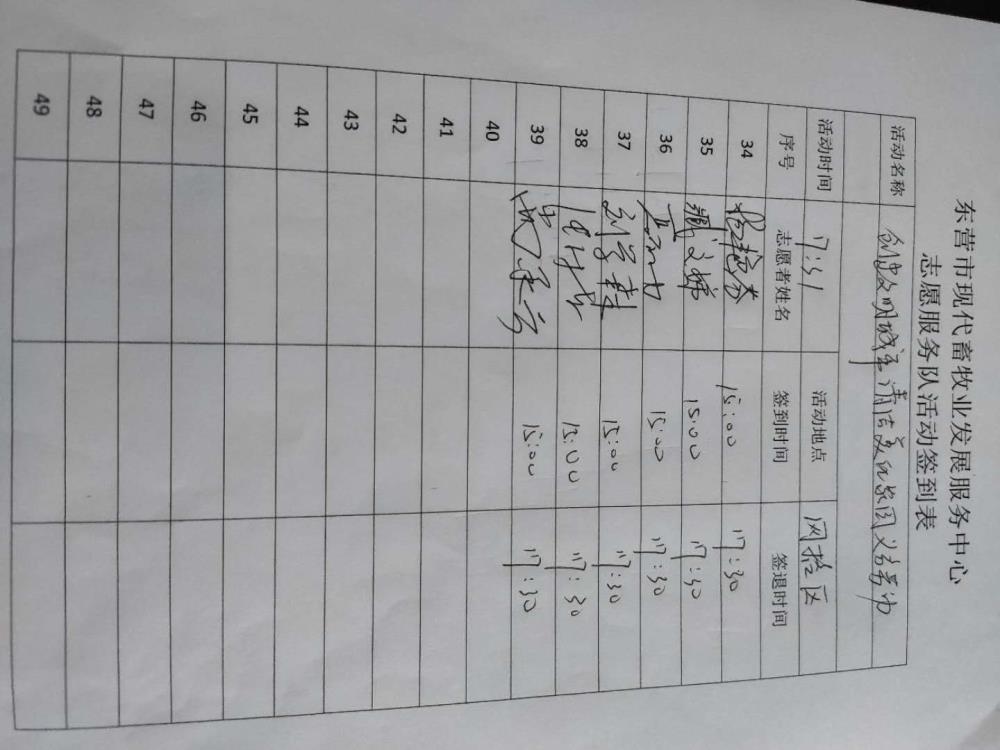 东营市现代畜牧业发展服务中心
志愿服务队活动签到表
活动名称 创建文明城市清洁美化家园义务劳动
活动时间 7:31 活动地点 网格区
序号 志愿者姓名 签到时间 签退时间
34 15:00 17:30
35 15:00 17:30
36 15:00 17:30
37 15:00 17:30
38 15:00 17:30
39 15:00 17:30
40
41
42
43
44
45
46
47
48
49